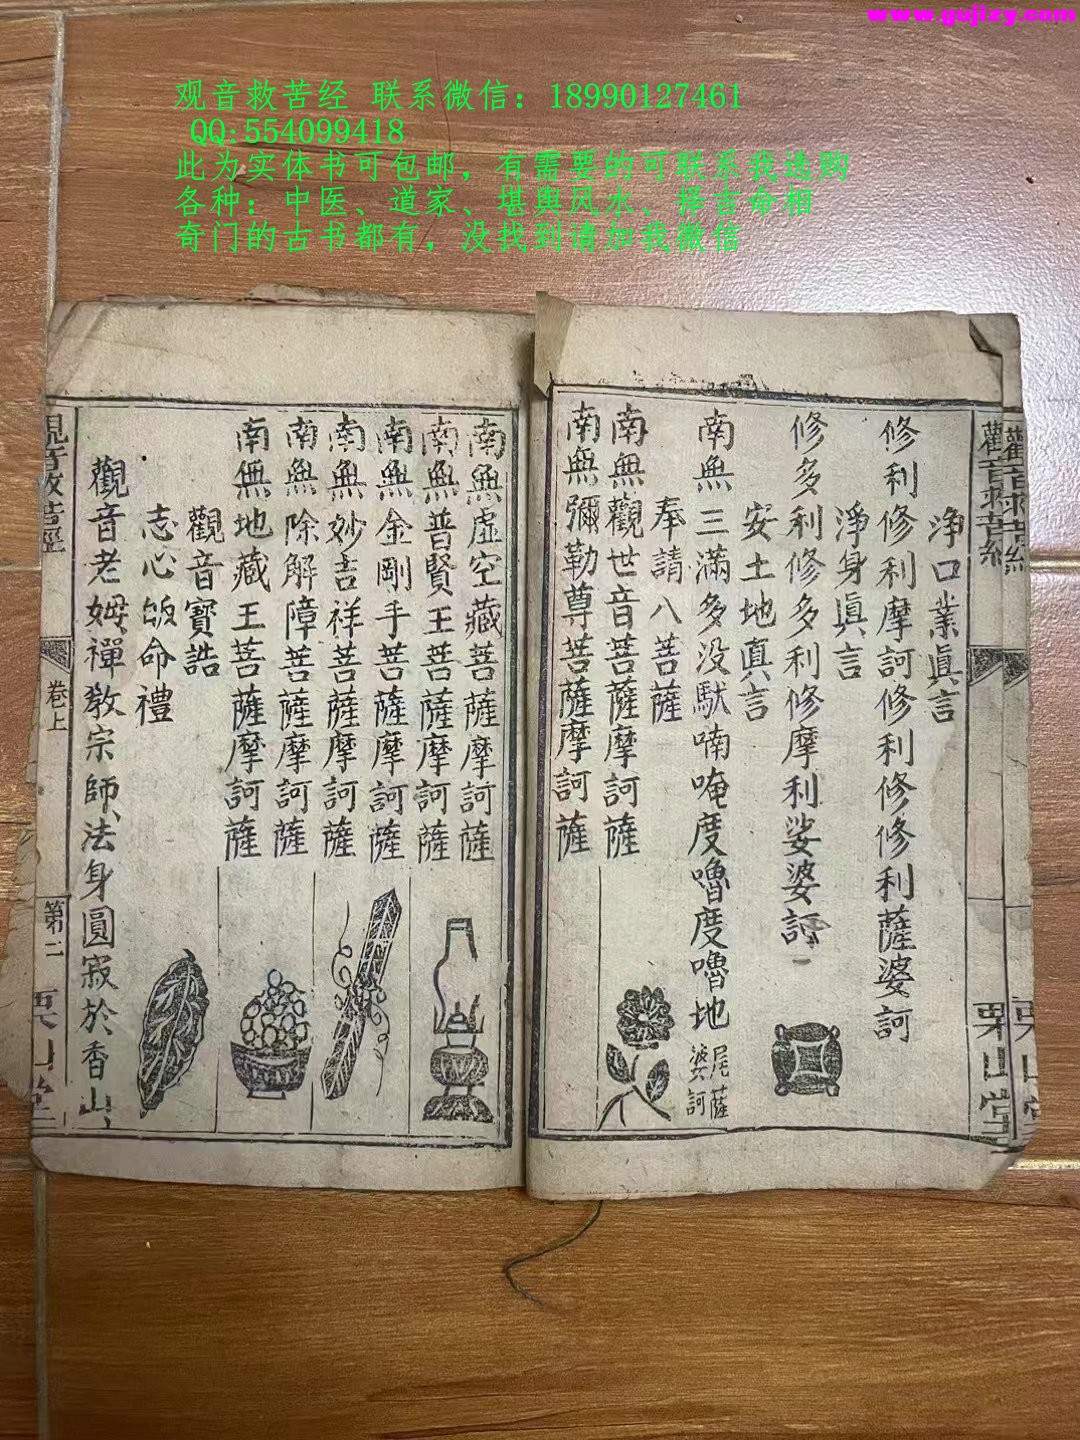 www.gujizy.com
观音救苦经 联系微信：18990127461
QQ:554099418
此为实体书可包邮，有需要的可联系我选购
各种：中医、道家、堪舆风水、择吉命相
奇门的古书都有，没找到请加我微信
觀音救苦經
栗山堂
淨口業眞言
修利修利摩訶修利修修利薩婆訶
淨身眞言
修多利修多利修摩利娑婆訶
安土地眞言
南無三滿多没馱喃唵度嚕度嚕地尾薩婆訶
奉請八菩薩
南無觀世音菩薩摩訶薩
南無彌勒尊菩薩摩訶薩
南無虛空藏菩薩摩訶薩
南無普賢王菩薩摩訶薩
南無金剛手菩薩摩訶薩
南無妙吉祥菩薩摩訶薩
南無除解障菩薩摩訶薩
南無地藏王菩薩摩訶薩
觀音寶誥
志心皈命禮
觀音老姆禪教宗師法身圓寂於香山
觀音救苦經
卷上
第二
栗山堂